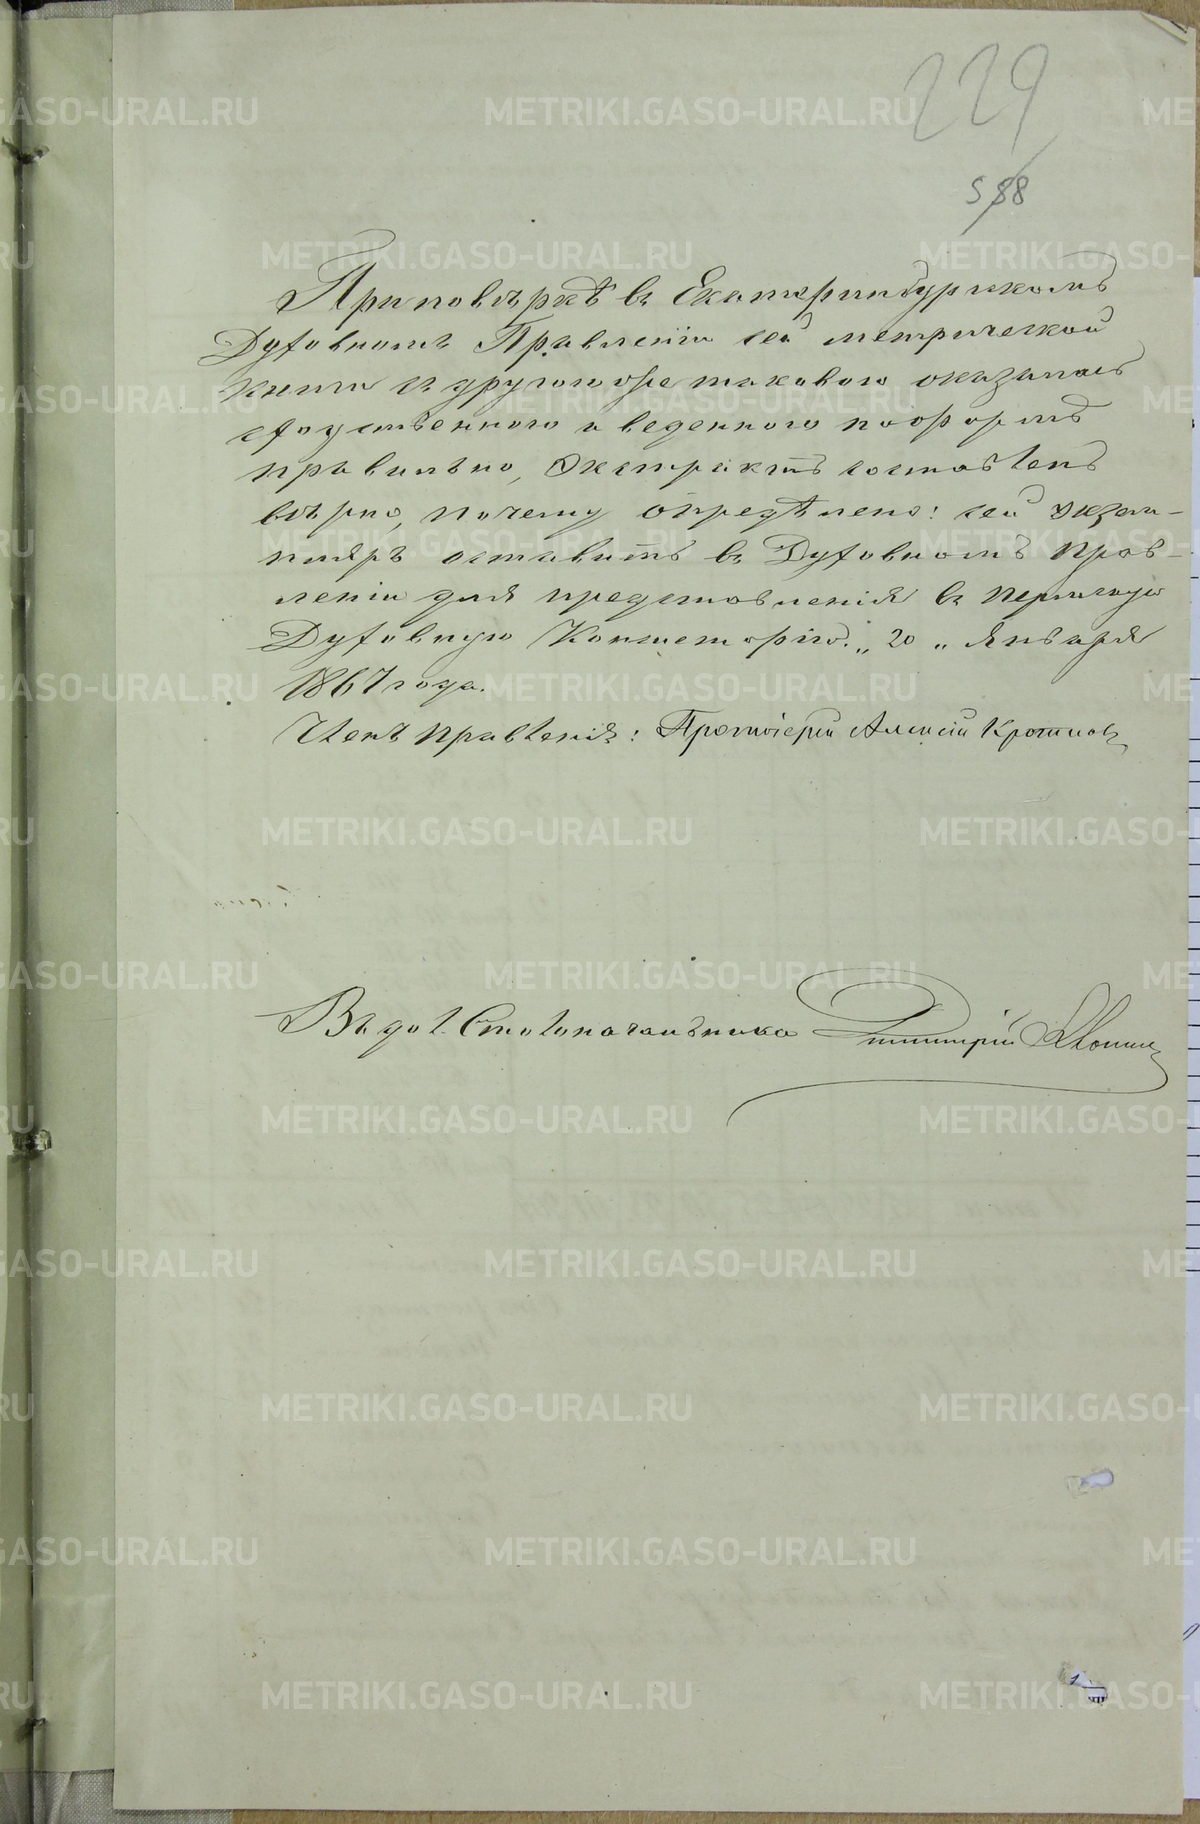 229
588
При повѣркѣ въ Екатеринбургскомъ
Духовномъ Правленіи сей метрической
книги съ другою оказалась
сходственною и веденною по формѣ
правильно, Экстрактъ составленъ
вѣрно, почему опредѣлено: сей экзем-
пляръ оставить въ Духовномъ Прав-
леніи для представленія въ Пермскую
Духовную Консисторію. „20„ Января
1867 года.
Членъ Правленія: Протоіерей Алексій
Въ дол. Столоначальника Димитрій
METRIKI.GASO-URAL.RU